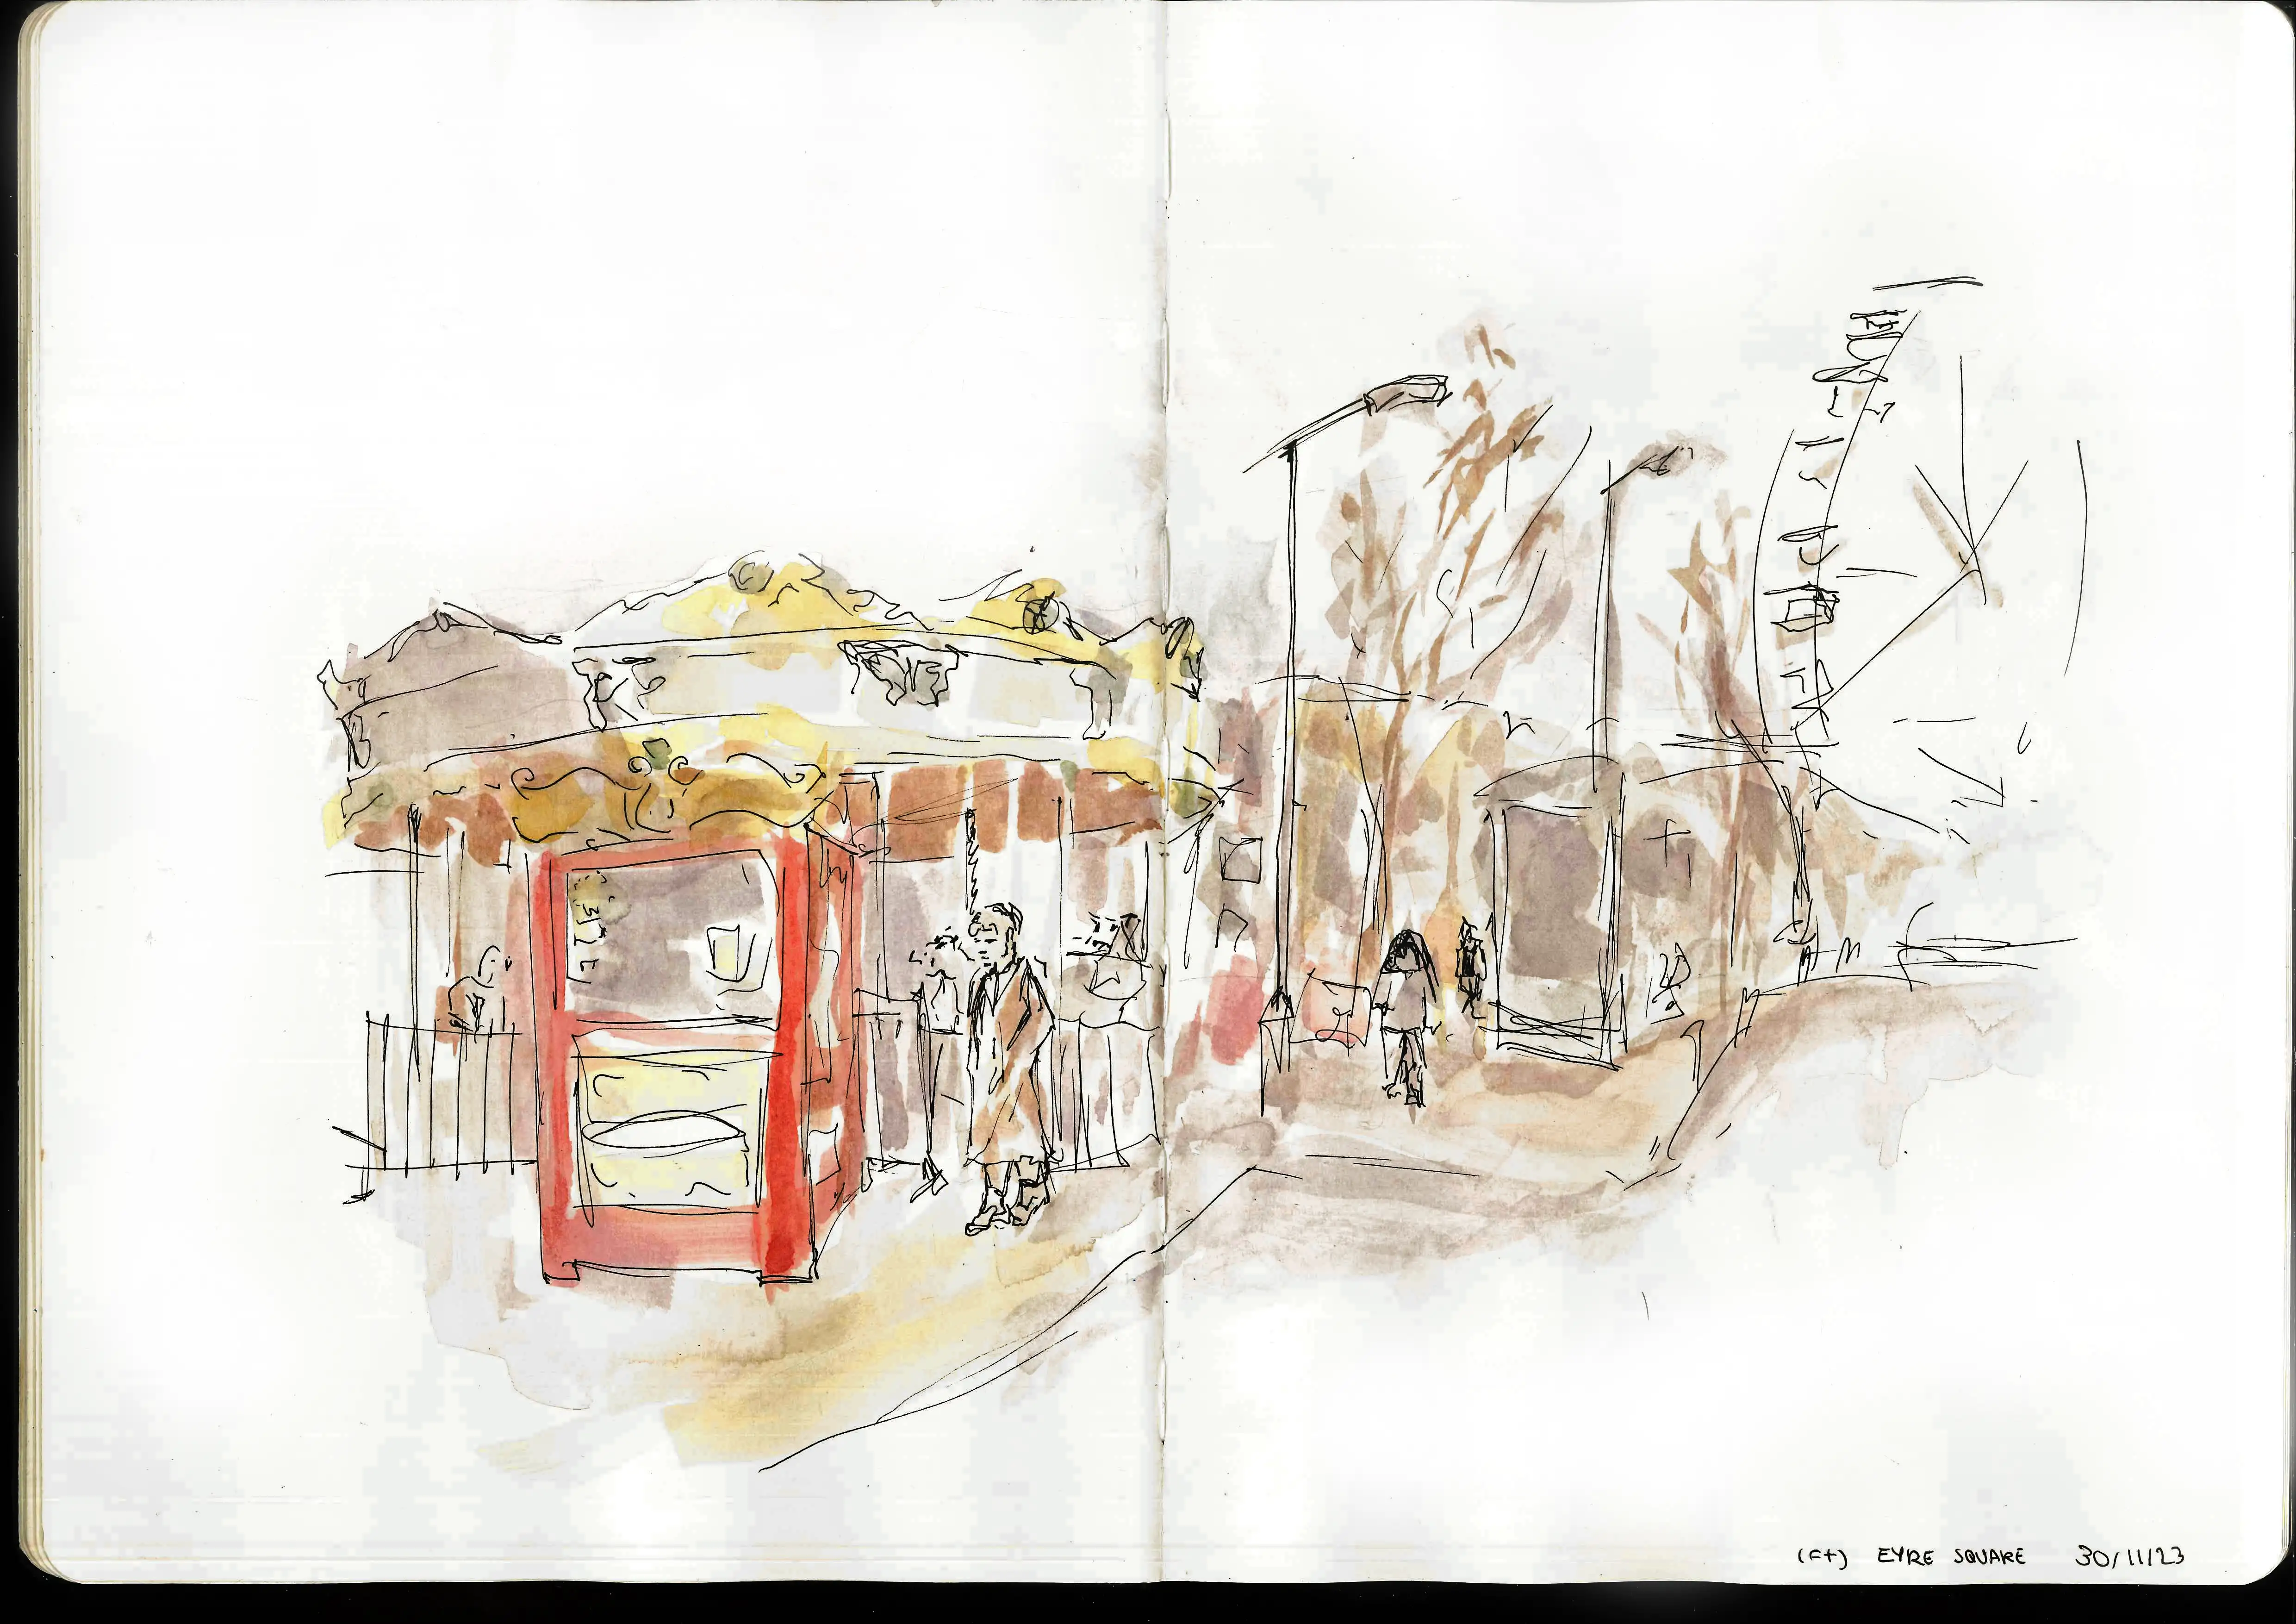 (Ft) EYRE SQUARE 30/11/23